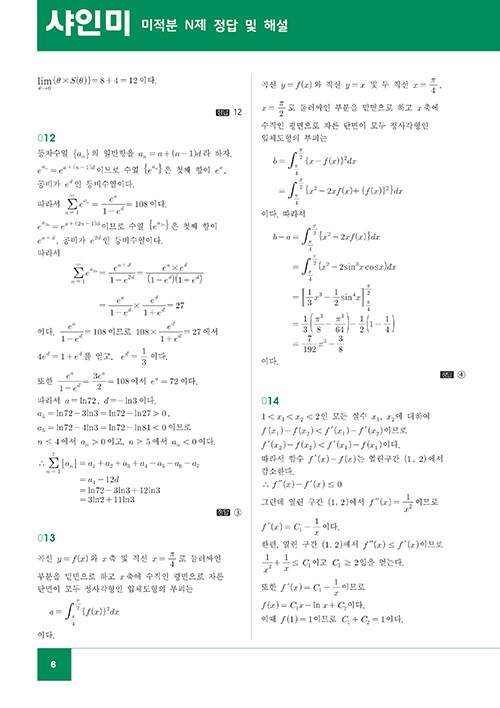 샤인미 미적분 N제 정답 및 해설
lim_{θ→0}{θ×S(θ)}=8+4=12이다.
정답 12
012
등차수열 {a_n}의 일반항을 a_n=a+(n-1)d라 하자.
e^{a_n}=e^{a+(n-1)d}이므로 수열 {e^{a_n}}은 첫째 항이 e^a,
공비가 e^d인 등비수열이다.
따라서 ∑_{n=1}^{∞}e^{a_n}=e^a/(1-e^d)=108이다.
e^{a_{2n}}=e^{a+(2n-1)d}이므로 수열 {e^{a_{2n}}}은 첫째 항이
e^{a+d}, 공비가 e^{2d}인 등비수열이다.
따라서
∑_{n=1}^{∞}e^{a_{2n}}=e^{a+d}/(1-e^{2d})=(e^a×e^d)/((1-e^d)(1+e^d))
=e^a/(1-e^d)×e^d/(1+e^d)=27
이다. e^a/(1-e^d)=108이므로 108×e^d/(1+e^d)=27에서
4e^d=1+e^d를 얻고, e^d=1/3이다.
또한 e^a/(1-e^d)=3e^a/2=108에서 e^a=72이다.
따라서 a=ln72, d=-ln3이다.
a_4=ln72-3ln3=ln72-ln27>0,
a_5=ln72-4ln3=ln72-ln81<0이므로
n≤4에서 a_n>0이고, n≥5에서 a_n<0이다.
∴ ∑_{n=1}^{7}|a_n|=a_1+a_2+a_3+a_4-a_5-a_6-a_7
=a_1-12d
=ln72-3ln3+12ln3
=3ln2+11ln3
정답 ③
013
곡선 y=f(x)와 x축 및 직선 x=π/4로 둘러싸인
부분을 밑면으로 하고 x축에 수직인 평면으로 자른
단면이 모두 정사각형인 입체도형의 부피는
a=∫_{π/4}^{π/2}{f(x)}²dx
이다.
곡선 y=f(x)와 직선 y=x 및 두 직선 x=π/4,
x=π/2로 둘러싸인 부분을 밑면으로 하고 x축에
수직인 평면으로 자른 단면이 모두 정사각형인
입체도형의 부피는
b=∫_{π/4}^{π/2}{x-f(x)}²dx
=∫_{π/4}^{π/2}{x²-2xf(x)+{f(x)}²}dx
이다. 따라서
b-a=∫_{π/4}^{π/2}{x²-2xf(x)}dx
=∫_{π/4}^{π/2}(x²-2sin³xcosx)dx
=[1/3x³-1/2sin⁴x]_{π/4}^{π/2}
=1/3(π³/8-π³/64)-1/2(1-1/4)
=7/192π³-3/8
이다.
정답 ④
014
1<x_1<x_2<2인 모든 실수 x_1, x_2에 대하여
f(x_1)-f(x_2)<f'(x_1)-f'(x_2)이므로
f'(x_2)-f(x_2)<f'(x_1)-f(x_1)이다.
따라서 함수 f'(x)-f(x)는 열린구간 (1, 2)에서
감소한다.
∴ f''(x)-f'(x)≤0
그런데 열린 구간 (1, 2)에서 f''(x)=1/x²이므로
f'(x)=C_1-1/x이다.
한편, 열린 구간 (1, 2)에서 f''(x)≤f'(x)이므로
1/x²+1/x≤C_1이고 C_1≥2임을 얻는다.
또한 f'(x)=C_1-1/x이므로
f(x)=C_1x-lnx+C_2이다.
이때 f(1)=1이므로 C_1+C_2=1이다.
6